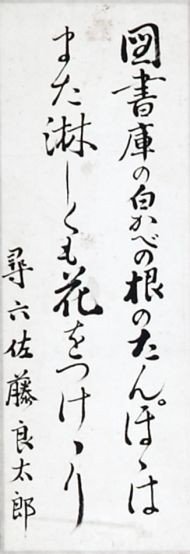 図書庫の白かべの根のたんぽゝは
また淋しくも花をつけゝり
尋六佐藤良太郎